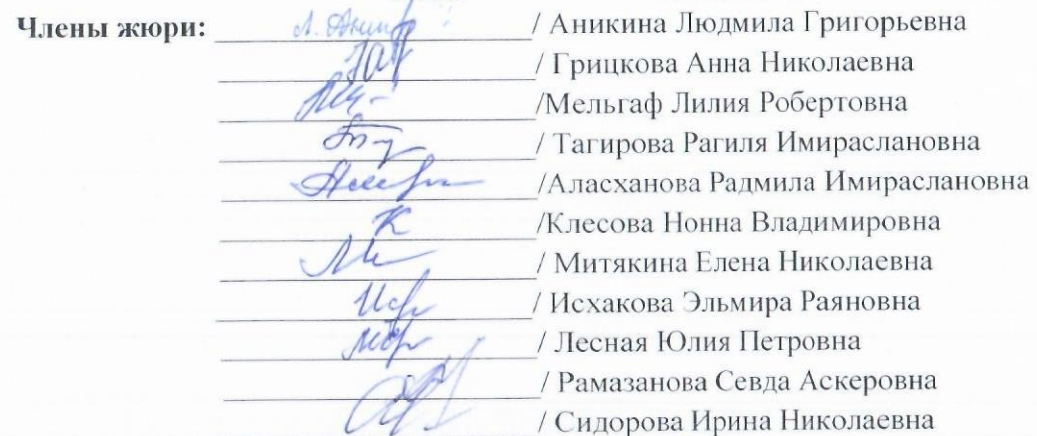 Члены жюри: / Аникина Людмила Григорьевна
/ Грицкова Анна Николаевна
/Мельгаф Лилия Робертовна
/ Тагирова Рагиля Имираслановна
/Аласханова Радмила Имираслановна
/Клесова Нонна Владимировна
/ Митякина Елена Николаевна
/ Исхакова Эльмира Раяновна
/ Лесная Юлия Петровна
/ Рамазанова Севда Аскеровна
/ Сидорова Ирина Николаевна